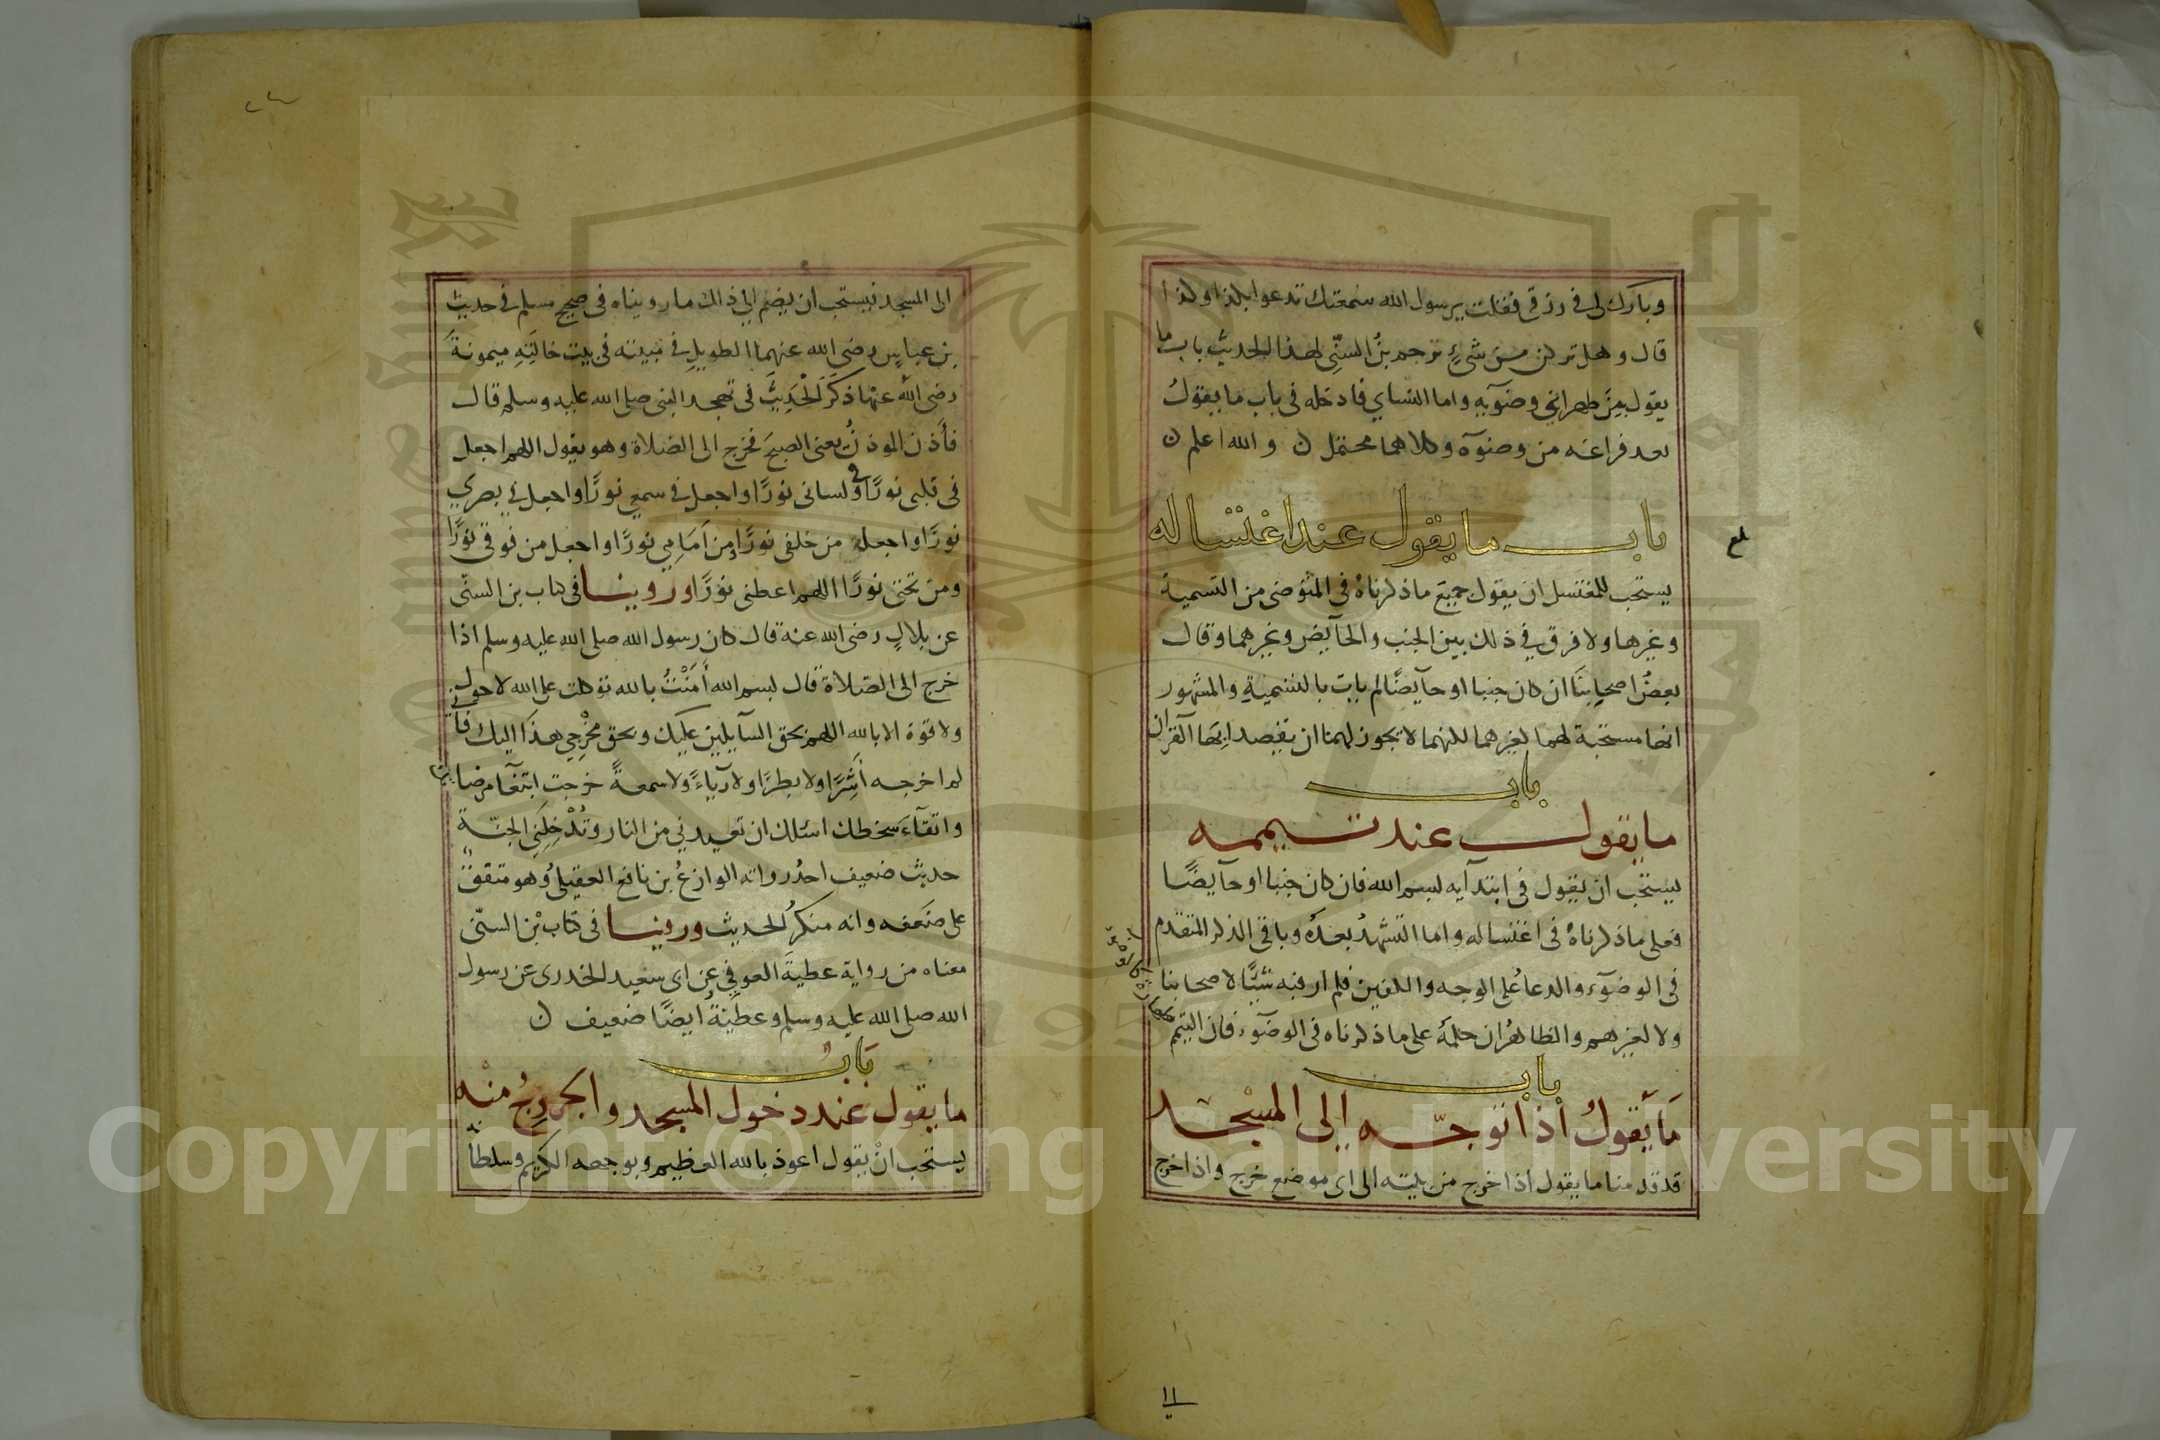 وبارك لى فى رزقى فقلت يرسول الله سمعتك تدعوا بكذا وكذا
قال وهل تركن من شىء ترجم بن السنى لهذا الحديث باب ما
يقول بين ظهرانى وضوءه واما النساي فادخله فى باب ما يقول
بعد فراغه من وضوءه وكلاهما محتمل ن والله اعلم ن
باب ما يقول عند اغتساله
يستحب للمغتسل ان يقول جميع ما ذكرناه فى المتوضى من التسمية
وغيرها ولا فرق فى ذلك بين الجنب والحآيض وغيرهما وقال
بعض اصحابنا ان كان جنبا او حآيضًا لم يات بالتسمية والمشهور
انها مستحبة لهما كغيرهما لكنهما لا يجوز لهما ان يقصدا بها القران
باب
ما يقول عند تيممه
يستحب ان يقول فى ابتدآيه بسم الله فان كان جنبا او حآيضًا
فعلى ما ذكرناه فى اغتساله واما التشهد بعده وباقى الذكر المتقدم
فى الوضوء والدعا على الوجه والكفين فلم ار فيه شيئًا لاصحابنا
ولا لغيرهم والظاهر ان حكمه على ما ذكرناه فى الوضوء فان التيمم
باب
ما يقول اذا توجه إلى المسجد
قد قدمنا ما يقول اذا خرج من بيته الى اى موضع خرج واذا خرج
الى المسجد فيستحب ان يضم الى ذالك ما رويناه فى صحيح مسلم فى حديث
بن عباس رضى الله عنهما الطويل فى مبيته فى بيت خالته ميمونة
رضى الله عنها ذكر الحديث فى تهجد النبى صلى الله عليه وسلم قال
فأذن الموذن يعنى الصبح فخرج الى الصلاة وهو يقول اللهم اجعل
فى قلبى نورًا وفى لسانى نورًا واجعل فى سمعى نورًا واجعل فى بصري
نورًا واجعل من خلفى نورًا ومن أمامي نورًا واجعل من فوقى نورًا
ومن تحتى نورًا اللهم اعطنى نورًا وروينا فى كتاب بن السنى
عن بلال رضى الله عنه قال كان رسول الله صلى الله عليه وسلم اذا
خرج الى الصلاة قال بسم الله أمنت بالله توكلت على الله لا حول
ولا قوة الا بالله اللهم بحق السآيلين عليك وبحق مخرجي هذا اليك فأنى
لم اخرجه أشرًا ولا بطرًا ولا رياءً ولا سمعةً خرجت ابتغآ مرضاتك
واتقآء سخطك اسئلك ان تعيدني من النار وتدخلني الجنة
حديث ضعيف احد رواته الوازع بن نافع العقيلى وهو متفق
على ضعفه وانه منكر الحديث وروينا فى كتاب بن السنى
معناه من رواية عطية العوفى عن ابى سعيد الخدرى عن رسول
الله صلى الله عليه وسلم وعطية ايضًا ضعيف ن
باب
ما يقول عند دخول المسجد والخروج منه
يستحب ان يقول اعوذ بالله العظيم وبوجهه الكريم وسلطا
Copyright © King Saud University